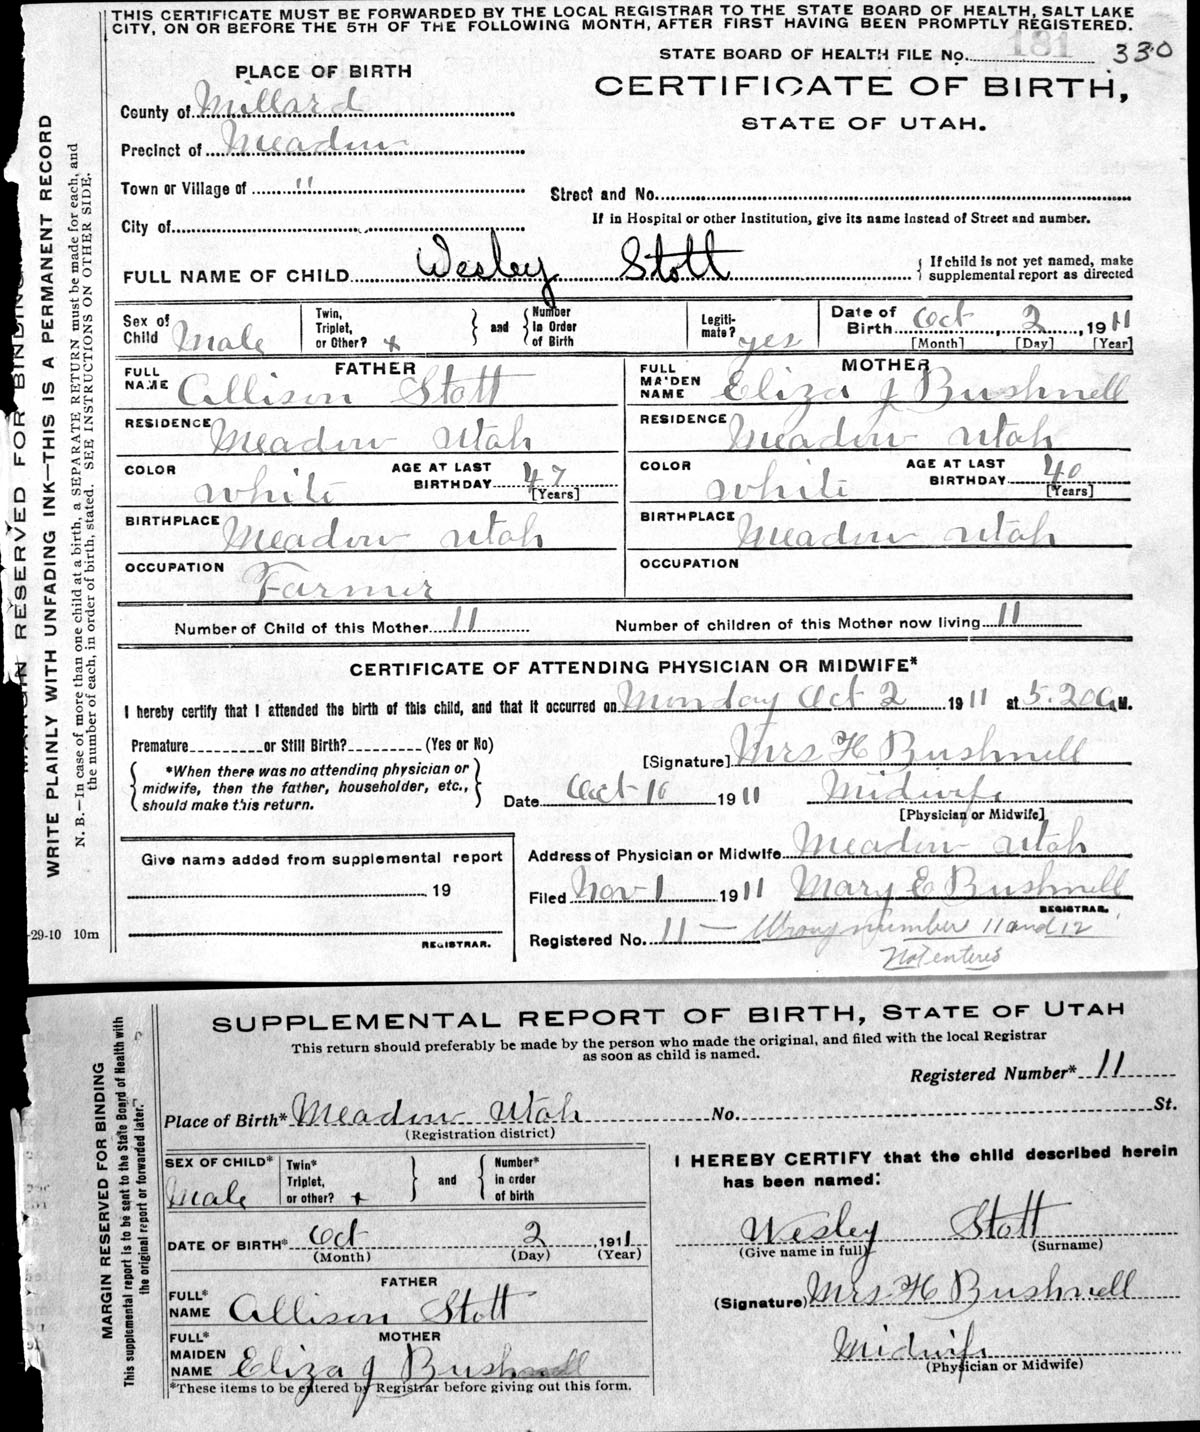 THIS CERTIFICATE MUST BE FORWARDED BY THE LOCAL REGISTRAR TO THE STATE BOARD OF HEALTH, SALT LAKE
CITY, ON OR BEFORE THE 5TH OF THE FOLLOWING MONTH, AFTER FIRST HAVING BEEN PROMPTLY REGISTERED.
STATE BOARD OF HEALTH FILE No. 181 330
PLACE OF BIRTH
CERTIFICATE OF BIRTH,
STATE OF UTAH.
County of Millard
Precinct of Meadow
Town or Village of "
Street and No.
City of
If in Hospital or other Institution, give its name instead of Street and number.
FULL NAME OF CHILD Wesley Stott { If child is not yet named, make
supplemental report as directed
Sex of Child Male
Twin, Triplet, or Other? +
} and { Number in Order of Birth
Legiti-mate? yes
Date of Birth Oct, 2, 1911
[Month] [Day] [Year]
FATHER
FULL NAME Allison Stott
MOTHER
FULL MAIDEN NAME Eliza J Bushnell
RESIDENCE Meadow Utah
RESIDENCE Meadow Utah
COLOR White AGE AT LAST BIRTHDAY 47 [Years]
COLOR White AGE AT LAST BIRTHDAY 40 [Years]
BIRTHPLACE Meadow Utah
BIRTHPLACE Meadow Utah
OCCUPATION Farmer
OCCUPATION
Number of Child of this Mother 11 Number of children of this Mother now living 11
CERTIFICATE OF ATTENDING PHYSICIAN OR MIDWIFE*
I hereby certify that I attended the birth of this child, and that it occurred on Monday Oct 2 1911 at 5.20 A M.
Premature or Still Birth? (Yes or No)
{ *When there was no attending physician or
midwife, then the father, householder, etc.,
should make this return. }
[Signature] Mrs H Bushnell
Date Oct 10 1911 Midwife
[Physician or Midwife]
Address of Physician or Midwife Meadow Utah
Filed Nov 1 1911 Mary E Bushnell
REGISTRAR.
Registered No. 11 — Wrong number 11 and 12
Not entered
Give name added from supplemental report
19
REGISTRAR.
-29-10 10m
MARGIN RESERVED FOR BINDING
WRITE PLAINLY WITH UNFADING INK—THIS IS A PERMANENT RECORD
N. B.—In case of more than one child at a birth, a SEPARATE RETURN must be made for each, and
the number of each, in order of birth, stated. SEE INSTRUCTIONS ON OTHER SIDE.
SUPPLEMENTAL REPORT OF BIRTH, STATE OF UTAH
This return should preferably be made by the person who made the original, and filed with the local Registrar
as soon as child is named.
Registered Number* 11
Place of Birth* Meadow Utah No. St.
(Registration district)
SEX OF CHILD* Male
Twin* Triplet, or other? +
} and { Number* in order of birth
DATE OF BIRTH* Oct 2 1911
(Month) (Day) (Year)
FATHER
FULL* NAME Allison Stott
MOTHER
FULL* MAIDEN NAME Eliza J Bushnell
*These items to be entered by Registrar before giving out this form.
I HEREBY CERTIFY that the child described herein
has been named:
Wesley Stott
(Give name in full) (Surname)
(Signature) Mrs H Bushnell
Midwife
(Physician or Midwife)
MARGIN RESERVED FOR BINDING
This supplemental report is to be sent to the State Board of Health with
the original report or forwarded later."